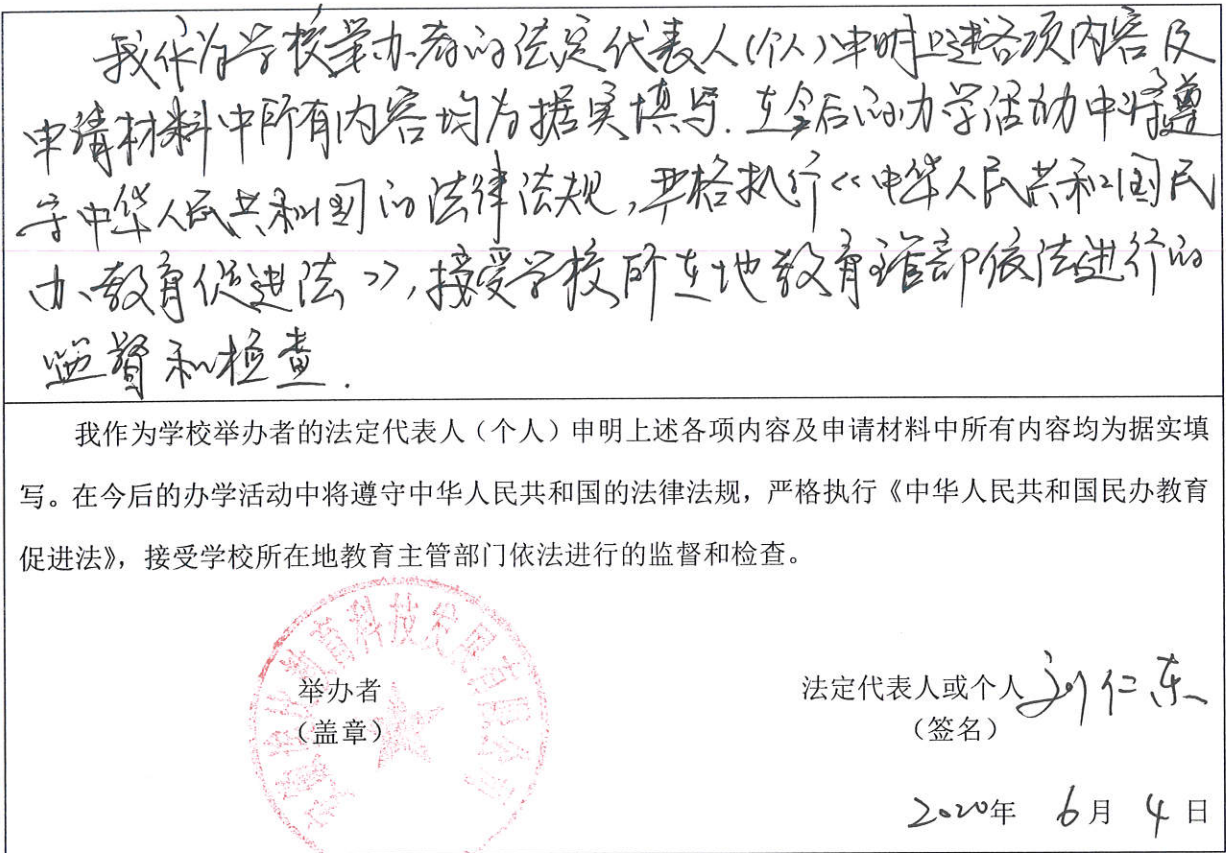 我作为学校举办者的法定代表人(个人)申明上述各项内容及
申请材料中所有内容均为据实填写.在今后的办学活动中将遵
守中华人民共和国的法律法规,严格执行《中华人民共和国民
办教育促进法》,接受学校所在地教育主管部门依法进行的
监督和检查.
我作为学校举办者的法定代表人（个人）申明上述各项内容及申请材料中所有内容均为据实填
写。在今后的办学活动中将遵守中华人民共和国的法律法规，严格执行《中华人民共和国民办教育
促进法》，接受学校所在地教育主管部门依法进行的监督和检查。
教育科技发展有限公司
举办者
（盖章）
法定代表人或个人 刘仁东
（签名）
2020年 6月 4日